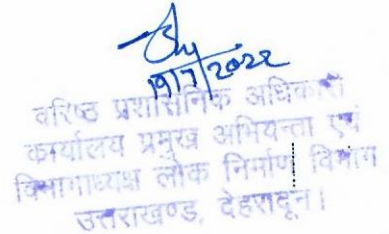 19/7/2022
वरिष्ठ प्रशासनिक अधिकारी
कार्यालय प्रमुख अभियन्ता एवं
विभागाध्यक्ष लोक निर्माण विभाग
उत्तराखण्ड, देहरादून।